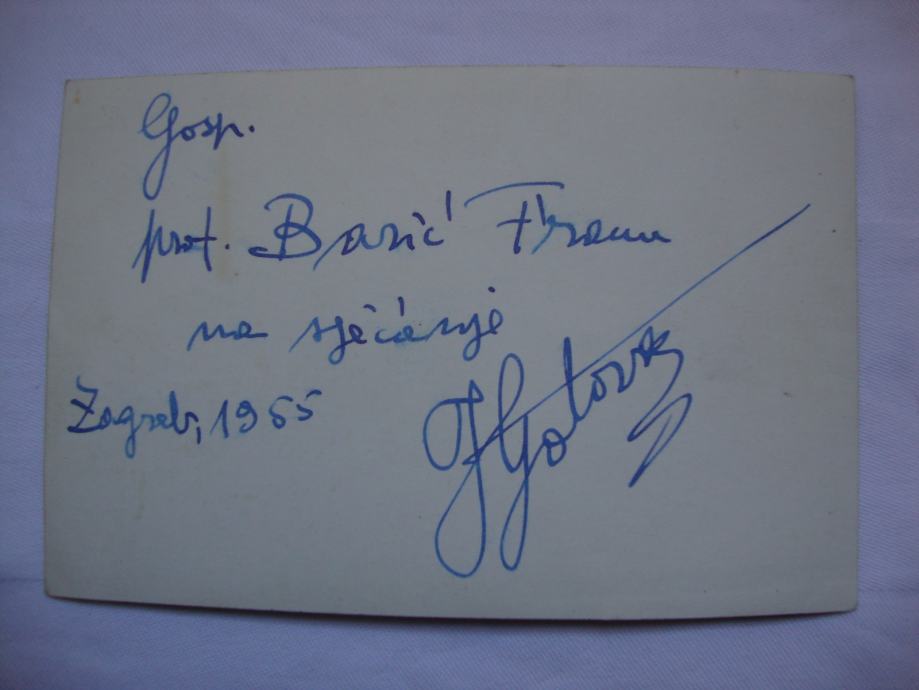 Gosp.
prof. Barić Franu
na sjećanje
Zagreb, 1965
JGotovac